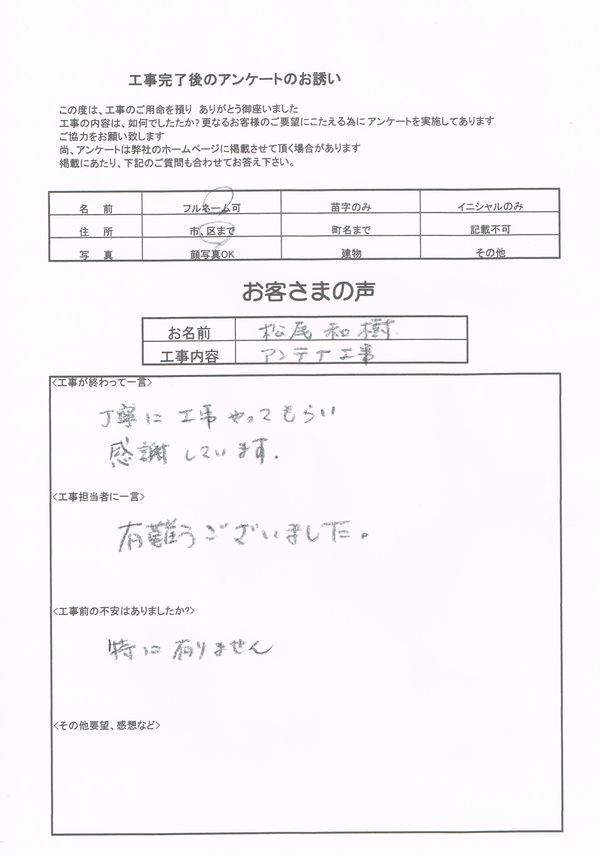 工事完了後のアンケートのお誘い
この度は、工事のご用命を預り ありがとう御座いました
工事の内容は、如何でしたたか?更なるお客様のご要望にこたえる為に アンケートを実施してあります
ご協力をお願い致します
尚、アンケートは弊社のホームページに掲載させて頂く場合があります
掲載にあたり、下記のご質問も合わせてお答え下さい。
名 前 フルネーム可 苗字のみ イニシャルのみ
住 所 市、区まで 町名まで 記載不可
写 真 顔写真OK 建物 その他
お客さまの声
お名前 松尾和樹
工事内容 アンテナ工事
<工事が終わって一言>
丁寧に工事やってもらい
感謝しています.
<工事担当者に一言>
有難うございました。
<工事前の不安はありましたか?>
特に有りません
<その他要望、感想など>